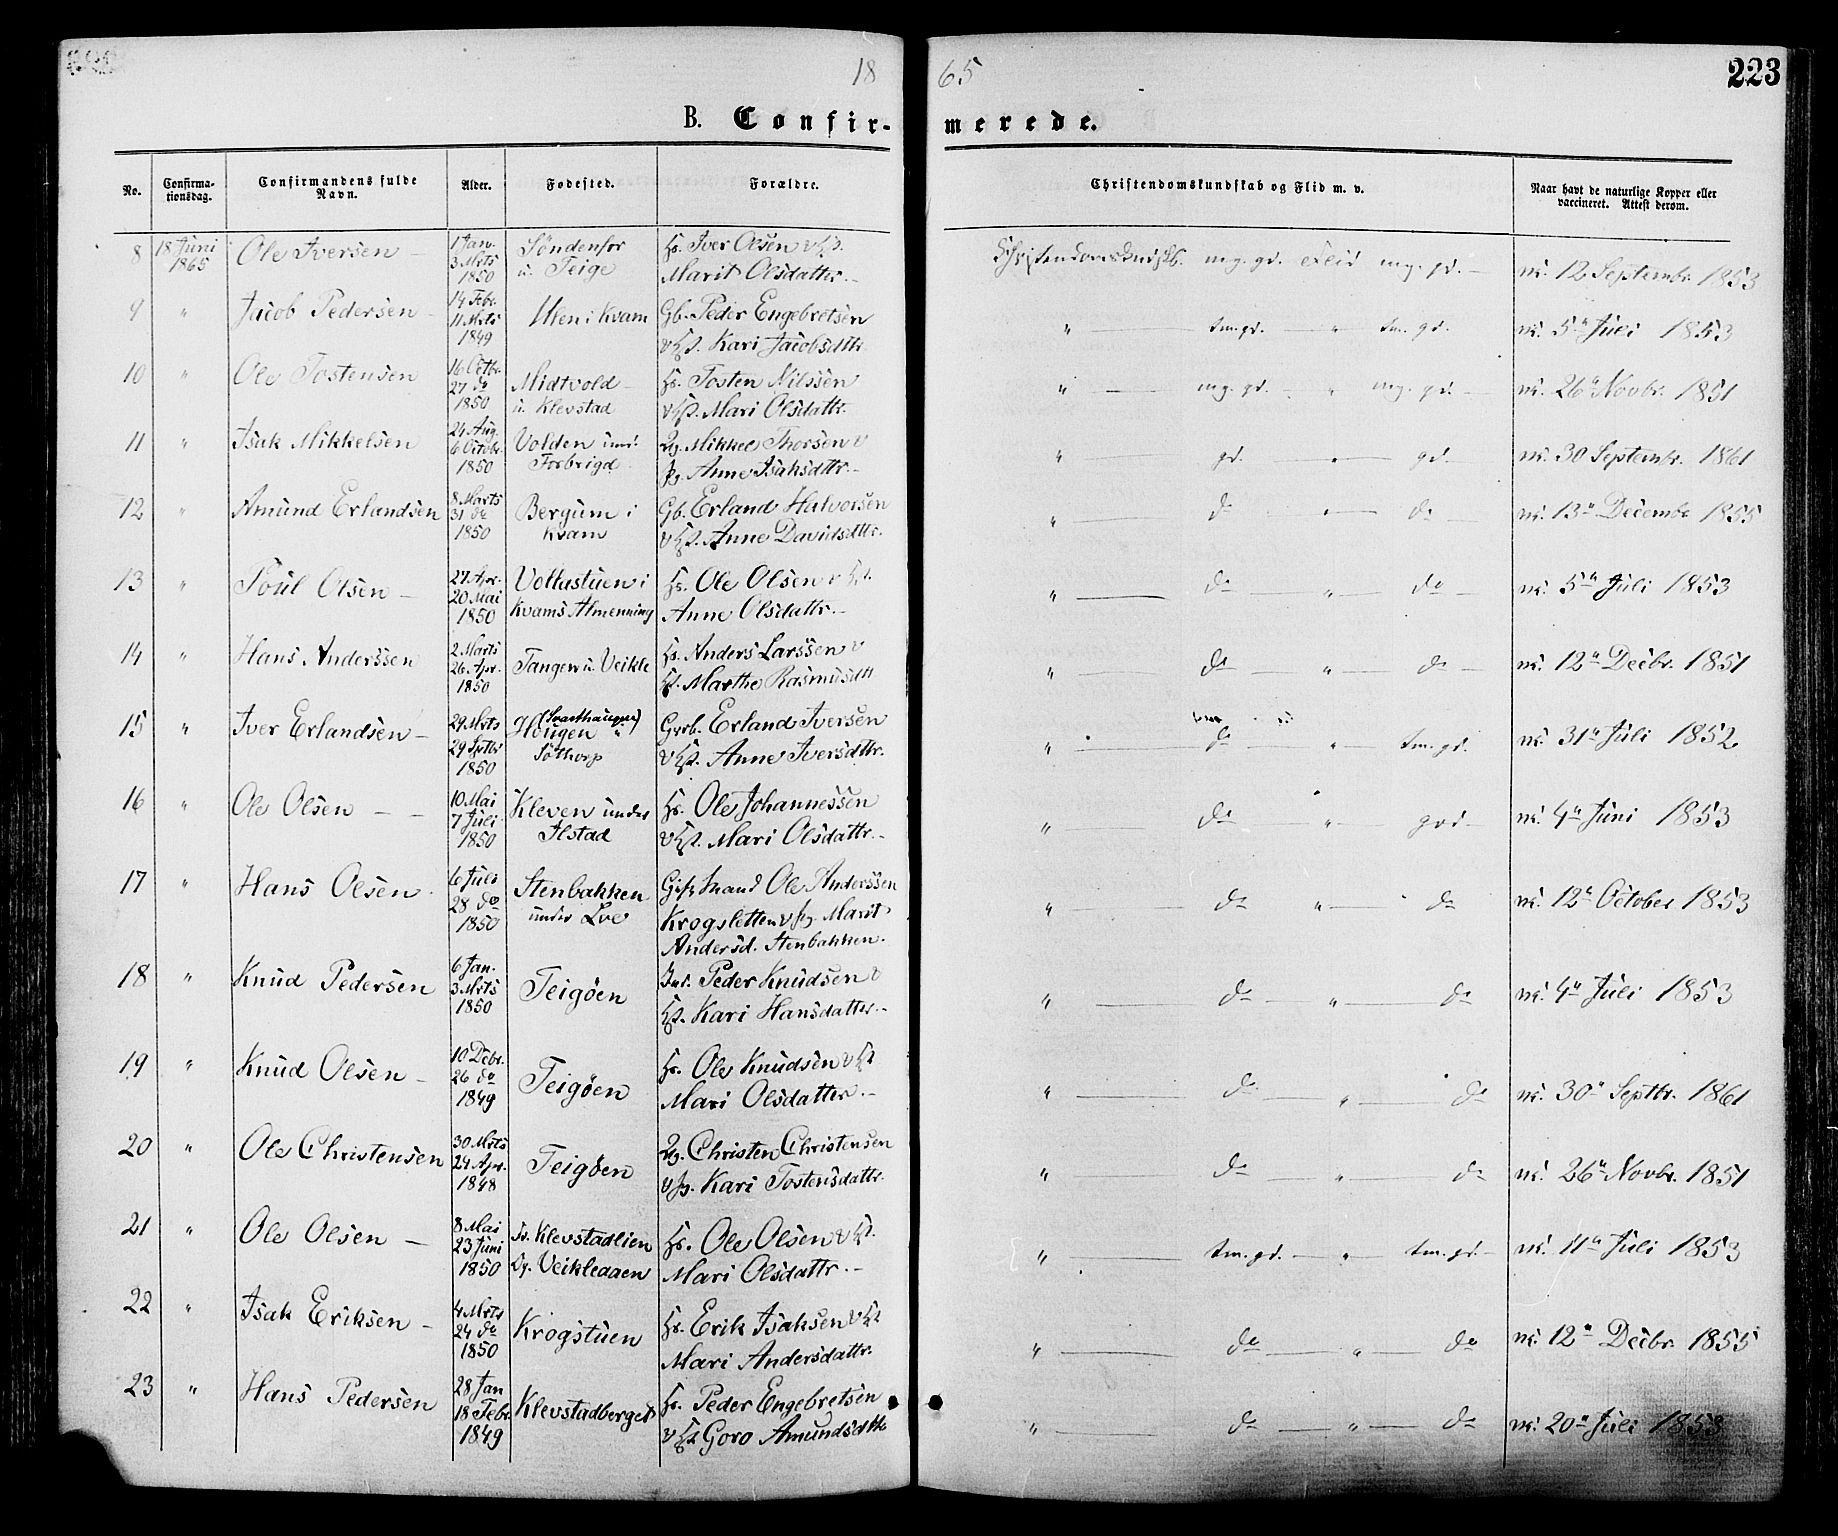 18 65 223
B. Confir- merede.
No. Confirma-tionsdag. Confirmandens fulde Navn. Alder. Fødested. Forældre. Christendomskundskab og Flid m. v. Naar havt de naturlige Kopper eller vaccineret. Attest derom.
8 18 Juni 1865 Ole Iversen – 1 Jan. 3 Mrts 1850 Søndenfor u. Teige Iver Olsen Marit Olsdattr. – mg. gd. Flid mg. gd. – 12 Septembr. 1853
9 " Jacob Pedersen – 14 Febr. 11 Mrts 1849 i Kvam Gb. Peder Engebretsen Kari Jacobsdttr. " tm. gd. – " tm. gd. 5te Juli 1853
10 " Ole Tostensen 16 Octbr. 27 do 1850 Midtvold – u. Klevstad Tosten Nilssen Mari Olsdattr. " mg. gd. – " mg. gd. – 26de Novbr. 1851
11 " Isak Mikkelsen 24 Aug. 6 Octobr. 1850 Volden und. Forbrigd Mikkel Thorsen Anne Isaksdttr. – " gd. " gd. – 30 Septembr. 1861
12 " Amund Erlandsen 8 Marts 31 do 1850 Bergum i Kvam Gb. Erland Halvorsen Anne Davidsdttr. " do " do 13de Decembr 1855
13 " Poul Olsen – 27 Apr. 20 Mai 1850 Voltastuen i Kvams Almenning Ole Olsen Anne Olsdattr. – " do " do – 5te Juli 1853
14 " Hans Anderssen 2 Marts 26 Apr. 1850 Tangen u. Veikle Anders Larssen Marthe Rasmusdtt " do " do – 12te Decbr. 1851
15 " Iver Erlandsen – 29 Mrts 29 Sptbr 1850 Hougen (Svarthaugen) " Sothorp Gvrb. Erland Iversen Anne Iversdttr. " do " tm. gd. 31te Juli 1852
16 " Ole Olsen – – 10 Mai 7 Juli 1850 Kleven under Ilstad Ole Johannessen Mari Olsdattr. – " do " god – 4de Juni 1853
17 " Hans Olsen 6 Juli 28 do 1850 Stenbakken under Loe Gift Mand Ole Anderssen Krogsletten Marit Andersd. Stenbakken. " do " do 12te October 1853
18 " Knud Pedersen 6 Jan. 3 Mrts 1850 Teigøen Ind. Peder Knudsen Kari Hansdatter. – " do " do 4de Juli 1853
19 " Knud Olsen – 10 Debr. 26 do 1849 Teigøen Ole Knudsen Mari Olsdatter. – " do " do 30te Septbr. 1861
20 " Ole Christensen 30 Mrts 24 Apr. 1848 Teigøen Christen Christensen Kari Tostensdattr. " do " do 26de Novbr. 1851
21 " Ole Olsen – 8 Mai 23 Juni 1850 Klevstadlien Veikleaaen Ole Olsen Mari Olsdattr. – " tm. gd. – " tm. gd. – 11te Juli 1853
22 " Isak Eriksen – 4 Mrts 24 do 1850 Krogstuen Erik Isaksen Mari Andersdattr. " do " do 12te Decbr. 1855
23 " Hans Pedersen 28 Jan 18 Febr. 1849 Klevstadberget Peder Engebretsen Goro Amundsdttr " do " do 20de Juli 1853